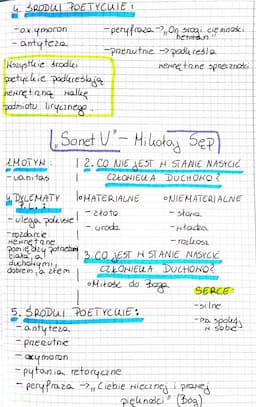 4. ŚRODKI POETYCKIE:
- oxymoron
- antyteza
- peryfraza → „On srogi ciemności
hetman"
- przerzutnie → podkreśla
wewnętrzne sprzeczności
Wszystkie środki
poetyckie podkreślają
wewnętrzną walkę
podmiotu lirycznego.
„Sonet V" – Mikołaj Sęp
1. MOTYW:
- vanitas
4. DYLEMATY
- ulega pokusie
- rozdarcie
wewnętrzne
pomiędzy potrzebami
ciała, a
duchowymi,
dobrem, a złem
2. CO NIE JEST W STANIE NASYCIĆ
CZŁOWIEKA DUCHOWO?
• MATERIALNE
- złoto
- uroda
• NIEMATERIALNE
- sława
- władza
- rozkosz
3. CO JEST W STANIE NASYCIĆ
CZŁOWIEKA DUCHOWO?
• Miłość do Boga
SERCE
- silne
- na spokój
w sobie
5. ŚRODKI POETYCKIE:
- antyteza
- przerzutnie
- oxymoron
- pytania retoryczne
- peryfraza → „Ciebie wiecznej i prawej
piękności" (Bóg)